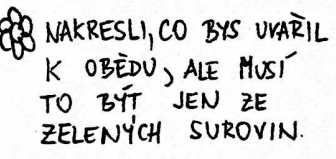 NAKRESLI, CO BYS UVAŘIL
K OBĚDU, ALE MUSÍ
TO BÝT JEN ZE
ZELENÝCH SUROVIN.